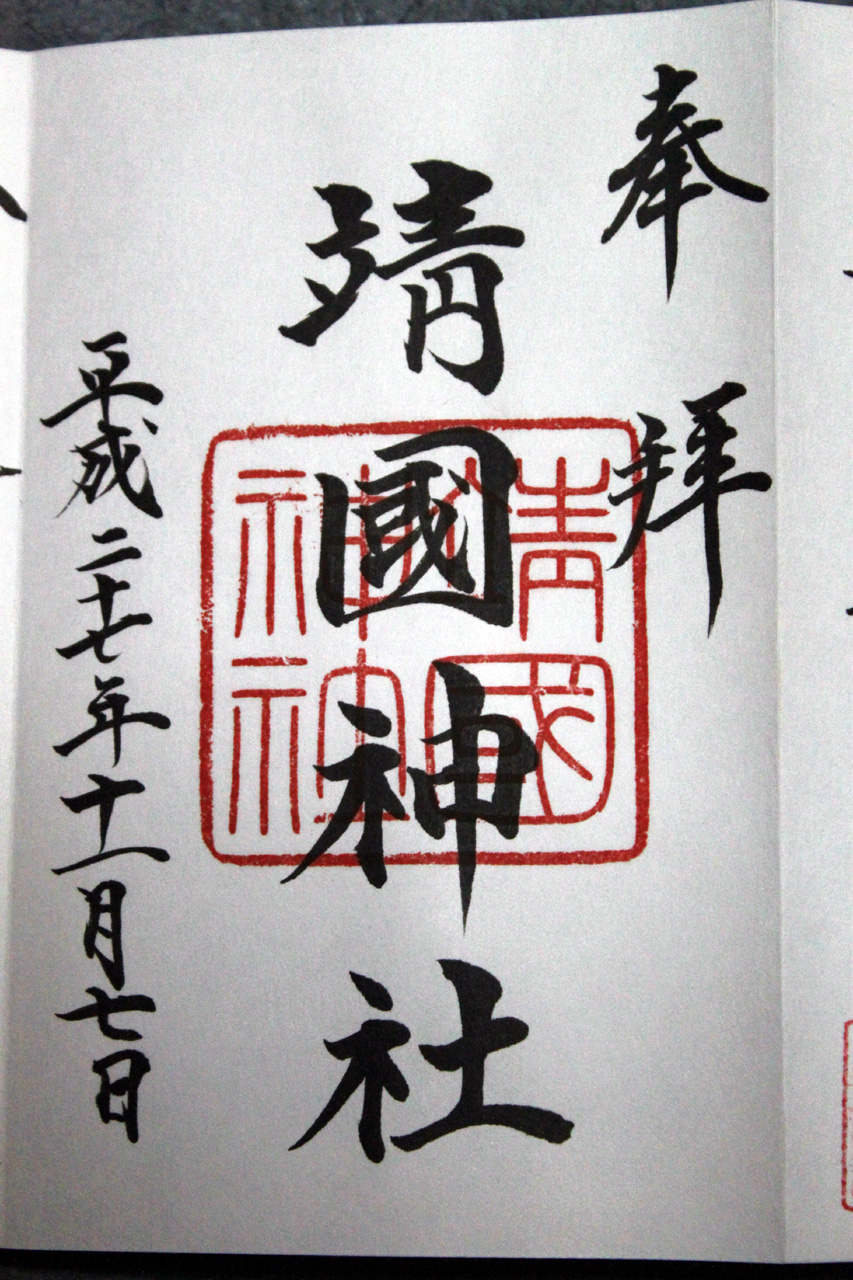 奉拝
靖國神社
靖國神社
平成二十七年十一月七日